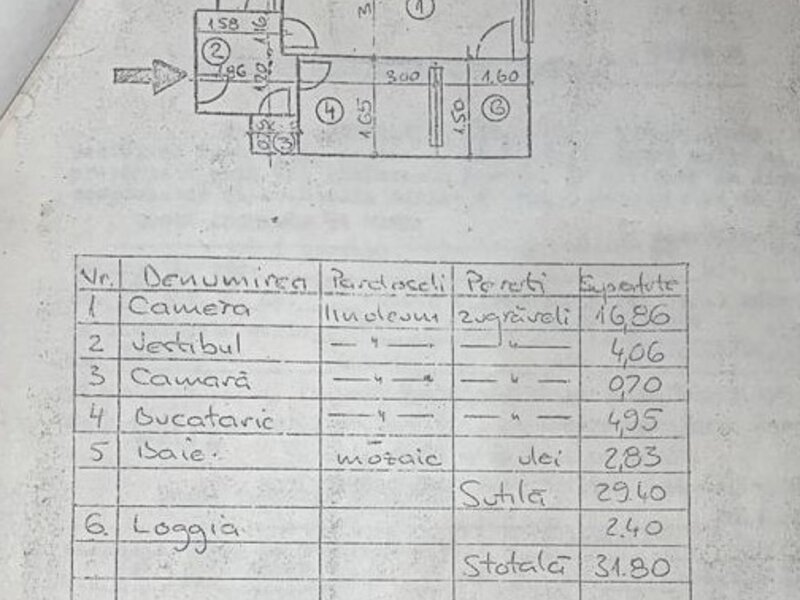 1
3
158
1.16
2
1.86
1.20
300
1.60
4
1.65
1.50
6
3
Nr. Denumirea Pardoseli Pereti Suprafete
1 Camera linoleum zugrăveli 16,86
2 Vestibul — " — — " — 4,06
3 Camară — " — — " — 0,70
4 Bucatarie — " — — " — 4,95
5 Baie. mozaic ulei 2,83
Sutilă 29.40
6. Loggia 2.40
Stotală 31.80